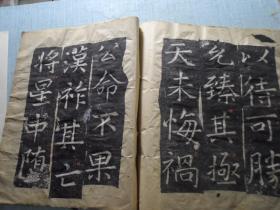 以待可勝
允臻其極
天未悔禍
公命不果
漢祚其亡
將星中隕